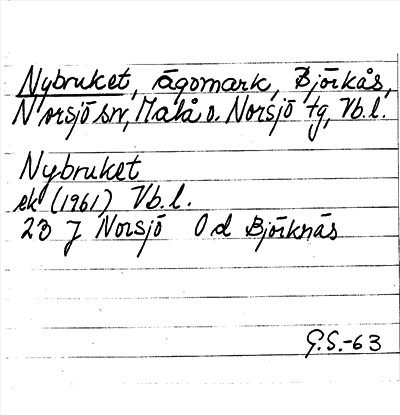 Nybruket, ägomark, Björkås,
Norsjö sn, Malå o. Norsjö tg, Vb.l.
Nybruket
ek (1961) Vb.l.
23 J Norsjö Od Björknäs
G.S.-63